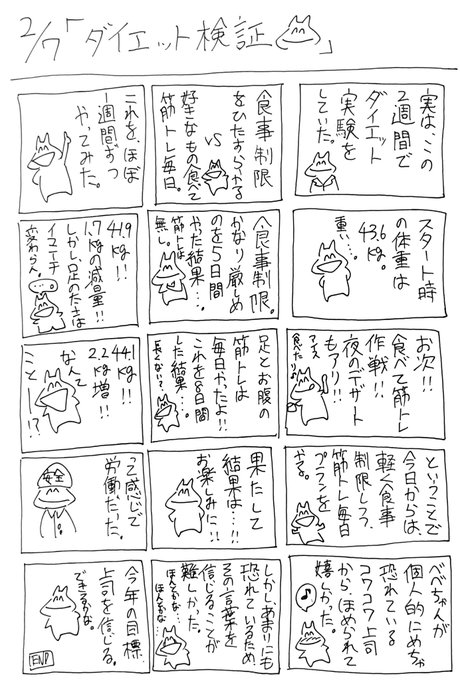 2/7「ダイエット検証　」
実は、この
2週間で
ダイエット
実験を
していた。
食事制限
をひたすらやる
VS
好きなもの食べて
筋トレ毎日。
これをほぼ
1週間ずつ
やってみた。
スタート時
の体重は
43.6
kg。
重い…
食事制限。
かなり厳しめ
のを5日間
やった結果…
筋トレは
無し。
41.9
kg!!
1.7kgの減量!!
しかし足の太さは
イマイチ
変わらん。
お次!!
食べて筋トレ
作戦!!
夜のデザート
もアリ!!
アイス
足とお腹の
筋トレは
毎日やったよ!!
これを8日間
した結果…
長くない?
44.1
kg!!
2.2
kg増!!
なんて
こと…!?
ということで
今日からは、
軽く食事
制限しつつ、
筋トレ毎日
プランを
やる。
果たして
結果は…!!
お楽しみに!!
って感じで
労働だった。
安全
べべちゃんが
個人的にめちゃ
恐れている
コワコワ上司
から、ほめられて
嬉しかった。
しかしあまりにも
恐れているため
その言葉を
信じることが
難しかった。
ほんとかな…
ほんとかな…
今年の目標
上司を信じる。
できるかな。
END